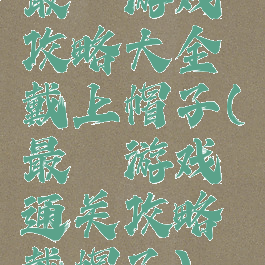 最 游戏
攻略大全
戴上帽子(
最 游戏
通关攻略
戴帽子)